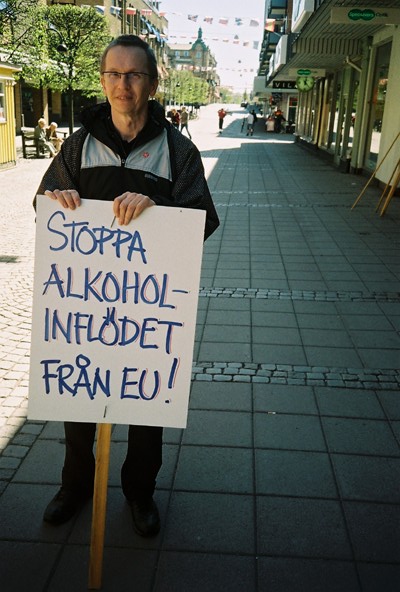 STOPPA
ALKOHOL-
INFLÖDET
FRÅN EU!